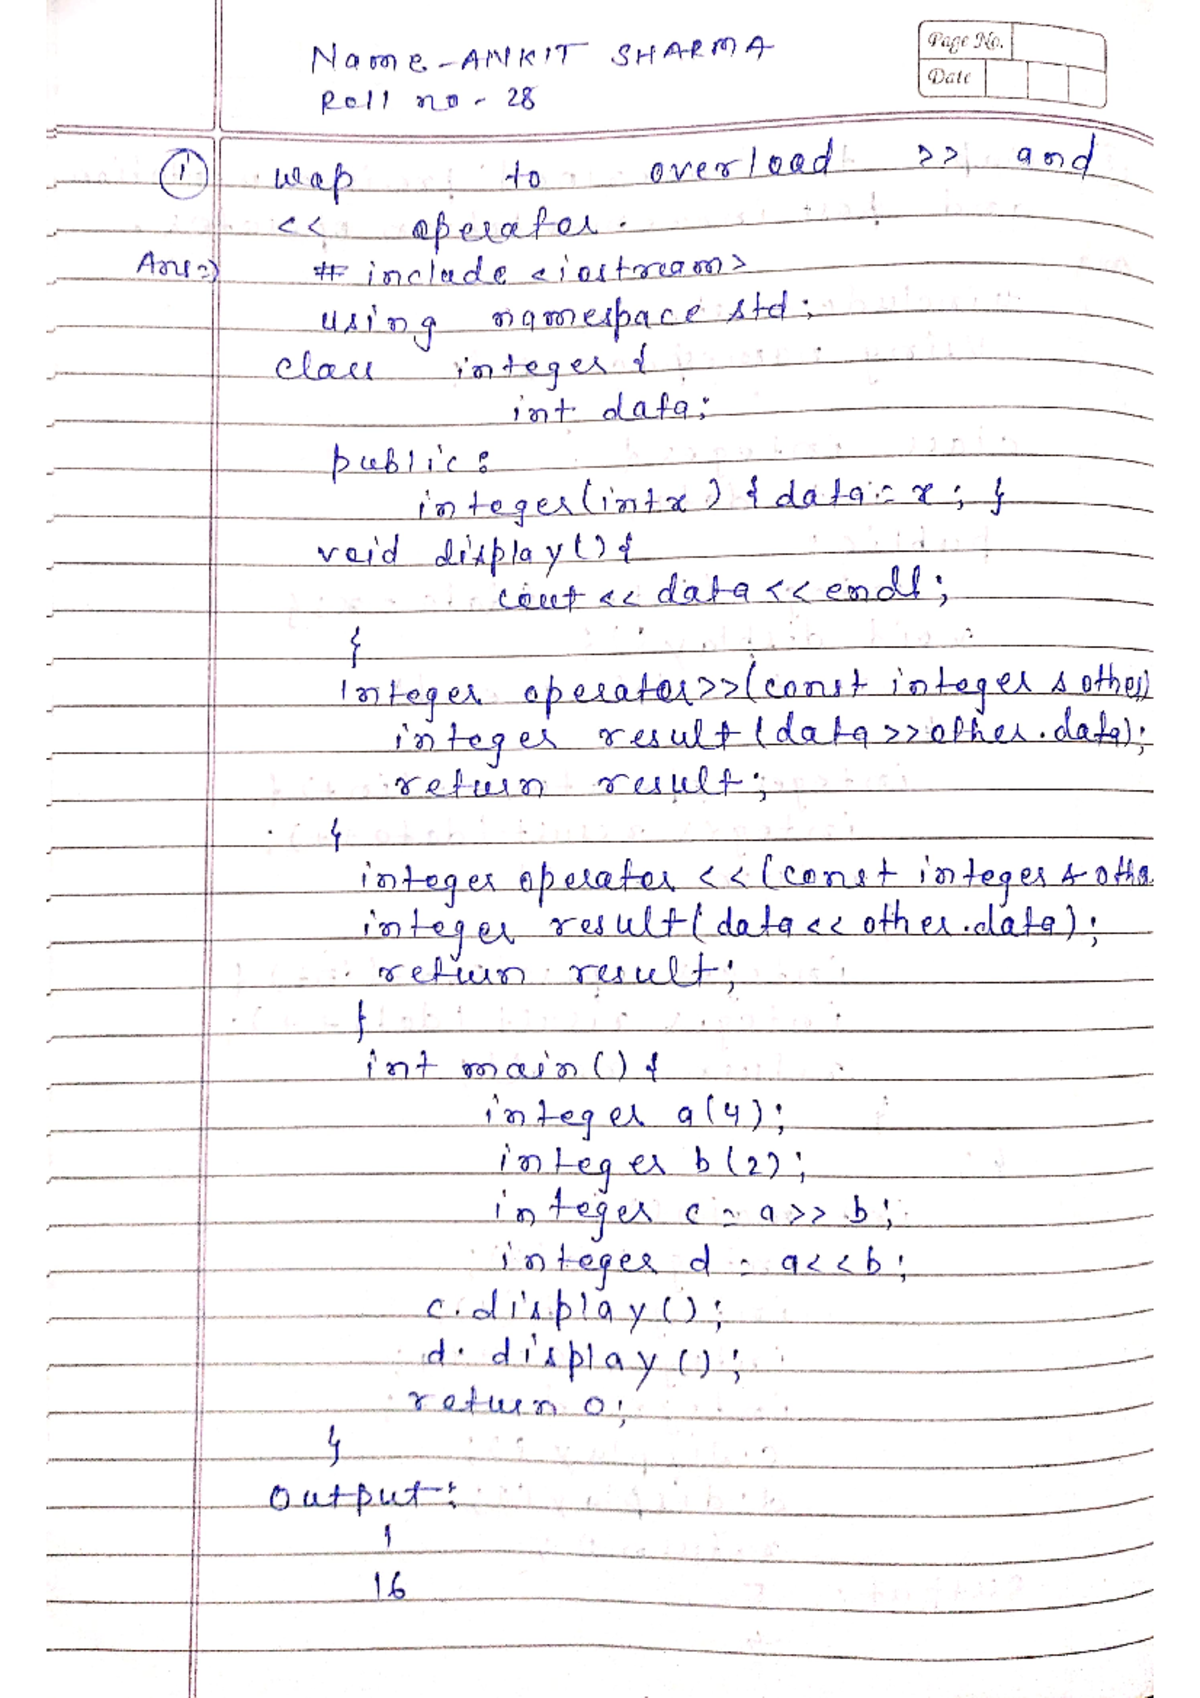 Name - ANKIT SHARMA
Roll no - 28
Page No.
Date
① wap to overload >> and
<< operator.
Ans=) # include <iostream>
using namespace std;
class integer {
int data;
public :
integer (int x) { data = x; }
void display () {
cout << data << endl;
}
Integer operator >> (const integer & other)
integer result (data >> other.data);
return result;
}
integer operator << (const integer & othe
integer result (data << other.data);
return result;
}
int main () {
integer a (4);
integer b (2);
integer c = a >> b;
integer d = a << b;
c. display ();
d. display ();
return 0;
}
Output :
1
16